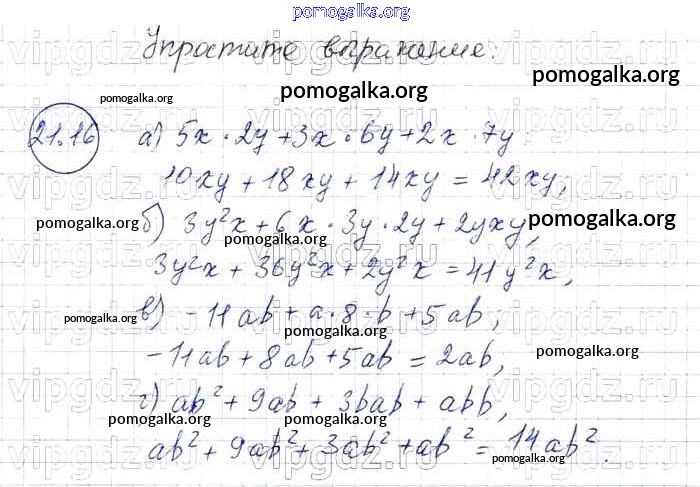 pomogalka.org
Упростите выражение:
pomogalka.org
pomogalka.org
pomogalka.org
21.16 а) 5x · 2y + 3x · 6y + 2x · 7y
10xy + 18xy + 14xy = 42xy,
pomogalka.org б) 3y²x + 6x · 3y · 2y + 2yxy, pomogalka.org
3y²x + 36y²x + 2y²x = 41y²x,
pomogalka.org в) -11ab + a · 8 · b + 5ab,
pomogalka.org
-11ab + 8ab + 5ab = 2ab, pomogalka.org
г) ab² + 9ab + 3bab + abb,
pomogalka.org pomogalka.org
ab² + 9ab² + 3ab² + ab² = 14ab².
vipgdz.ru